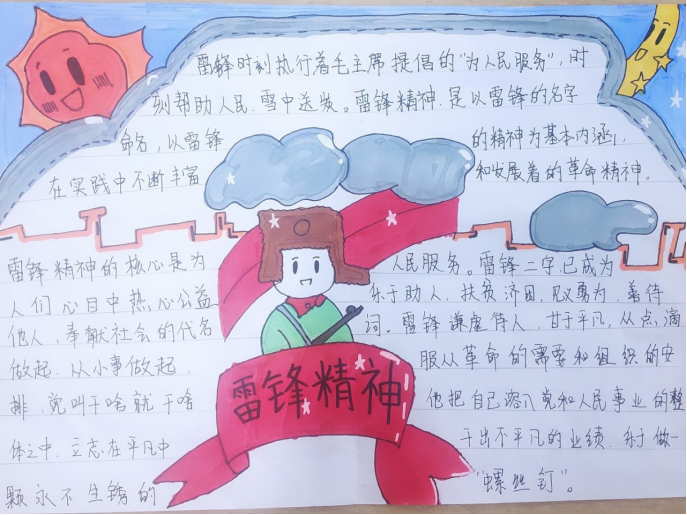 雷锋时刻执行着毛主席提倡的"为人民服务",时
刻帮助人民.雪中送炭。雷锋精神.是以雷锋的名字
命名,以雷锋的精神为基本内涵,
在实践中不断丰富和发展着的革命精神。
雷锋精神的核心是为人民服务。雷锋二字,已成为
人们心目中热心公益乐于助人,扶贫济困,见义勇为,善待
他人,奉献社会的代名词。雷锋谦虚待人.甘于平凡,从点滴
做起.从小事做起,服从革命的需要和组织的安
排,党叫干啥就干啥他把自己溶入党和人民事业的整
体之中.立志在平凡中干出不平凡的业绩.乐于做一
颗永不生锈的"螺丝钉"。
雷锋精神